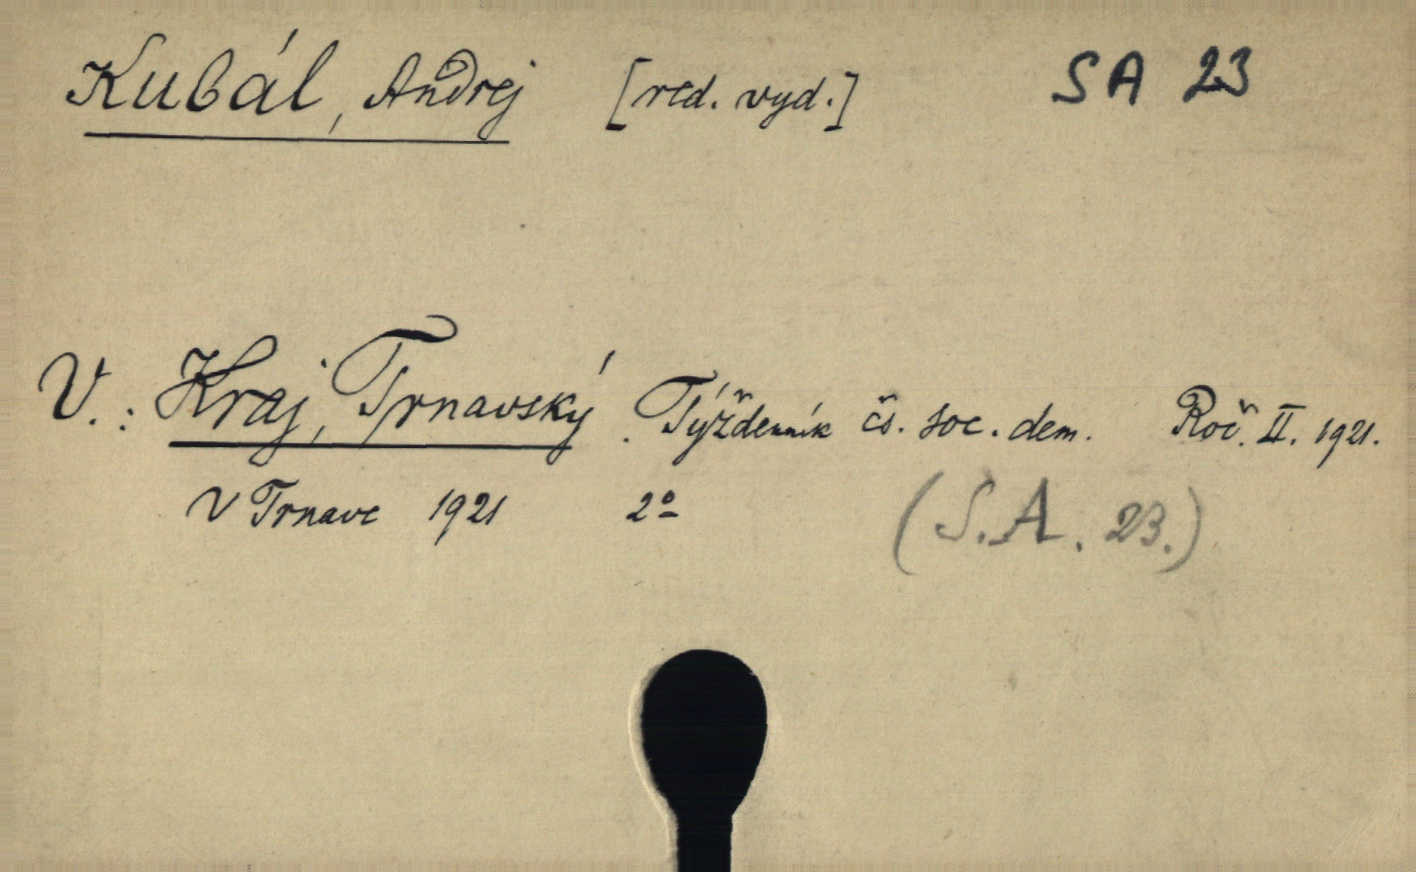 Kubál, Andrej [red. vyd.] SA 23
V.: Kraj, Trnavský. Týždenník čs. soc. dem. Roč. II. 1921.
V Trnave 1921 2º (S.A. 23.)